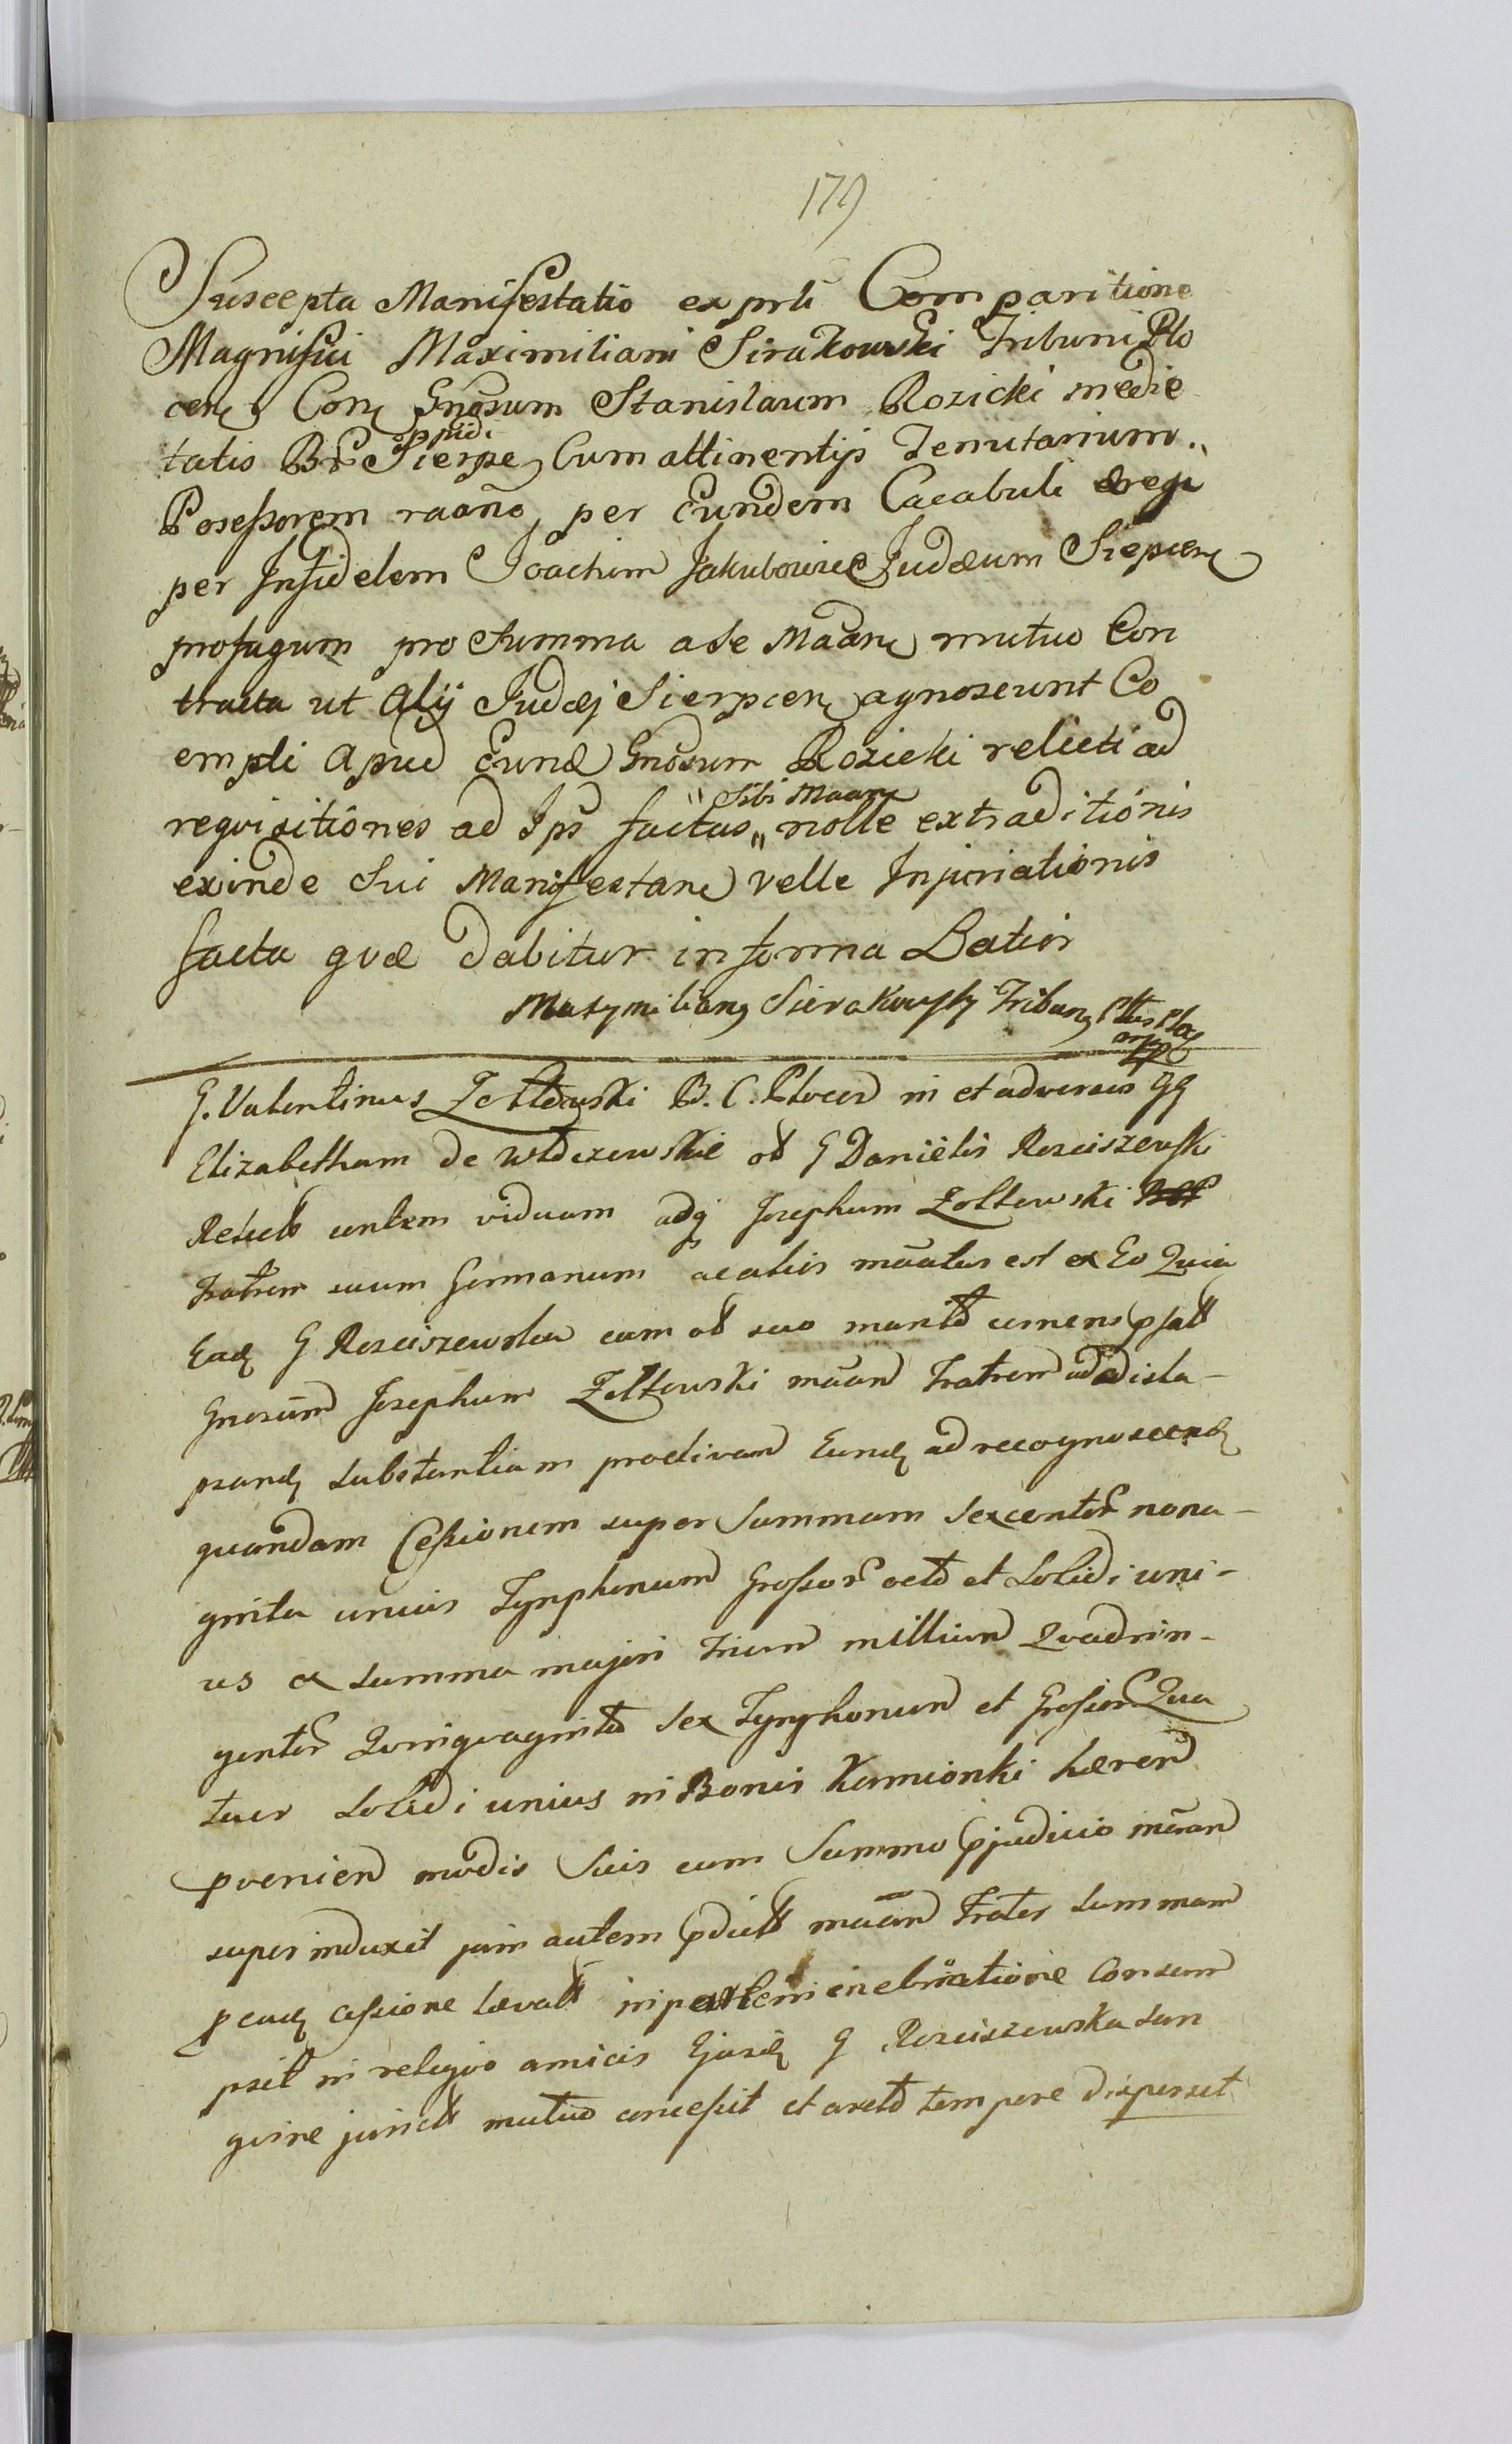 179
Suscepta Manifestatio ex prti Comparitione
Magnifici Maximiliani Sirakowski Tribuni Plo
cen Con Gnosum Stanislaum Rozicki medie
tatis Br Sierpe Cum attinentijs Tenutarium
Possessorem raōne per Eundem Cacabuli ereo
per Infidelem Joachim Jakubowicz Judæum Siepcen
profugum pro Summa a Se Maān mutuo Con
tracta ut Alij Judæj Sierpcen agnoscunt Co
empti Apud Eund Gnosum Rozicki relicti ad
Sibi Maān
requisitiones ad Ips factas nolle extraditionis
exinde Sui Manifestane velle Injuriationis
facta quæ dabitur in forma Latior
Maxymilian Sierakowsky Tribun Pltus Ploc
mp
G. Valentinus Zołtowski B. C. Plocen in et adversus GG
Elizabetham de Włoczewskie ol G Danielis Rosciszewski
Relictā viduam adq Josephum Zołtowski
Fratrem suum Germanum acatius māatus est ex Eo Quia
Ead G Rosciszewska cum ol suo marito cernens psatt
Gnosum Josephum Zołtowski māan Fratrem ad disla-
pand substantiam proclivam Eund ad recognoscend
quandam Cessionem super Summam Sexcentor nona-
ginta unius Tynphonum Grossor octo et Solidi uni-
us ex summa majori trium millium Quadrin-
gentor Quinquaginta Sex Tynphonum et Grossor Qua
tuor Solidi unius in Bonis Kamionki hæren
provenien modis Suis cum Summo pjudicio māan
superinduxit jam autem pdictt māan Frater Summam
p eand cessione levatt in partem inebriatione Consum
psit in reliquo amicis Ejusd G Rosciszewska San
guine junctt mutuo concessit et arcto tempore dispersit